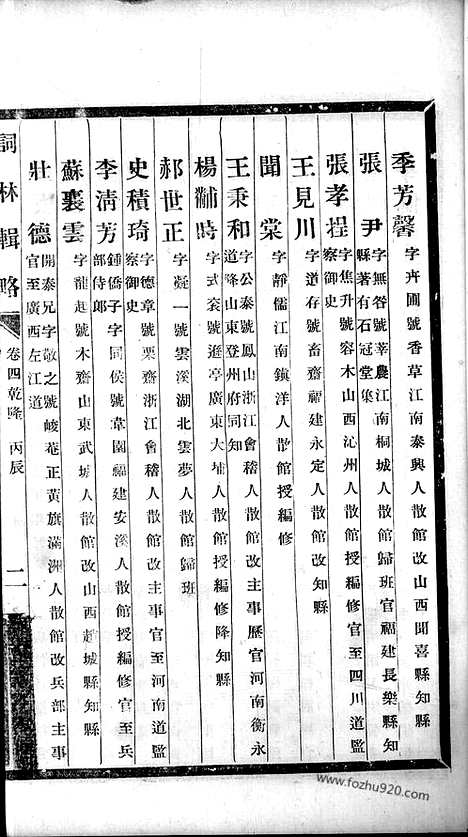 季芳馨 字卉圃號香草江南泰興人散館改山西聞喜縣知縣
張尹 字無咎號莘農江南桐城人散館歸班官福建長樂縣知
縣著有石冠堂集
張孝捏 字焦升號容木山西沁州人散館授編修官至四川道監
察御史
王見川 字道存號畜齋福建永定人散館改知縣
聞棠 字靜儒江南鎭洋人散館授編修
王秉和 字公泰號鳳山浙江會稽人散館改主事歷官河南衡永
道降山東登州府同知
楊黼時 字式袞號遜亭廣東大埔人散館授編修降知縣
郝世正 字凝一號雲溪湖北雲夢人散館歸班
史積琦 字德章號栗齋浙江會稽人散館改主事官至河南道監
察御史
李淸芳 鍾僑子字同侯號韋園福建安溪人散館授編修官至兵
部侍郎
蘇襄雲 字龍起號木齋山東武城人散館改山西趙城縣知縣
壯德 開泰兄字敬之號峻菴正黃旗滿洲人散館改兵部主事
官至廣西左江道
詞林輯略 卷四乾隆 丙辰 二
www.fozhu920.com